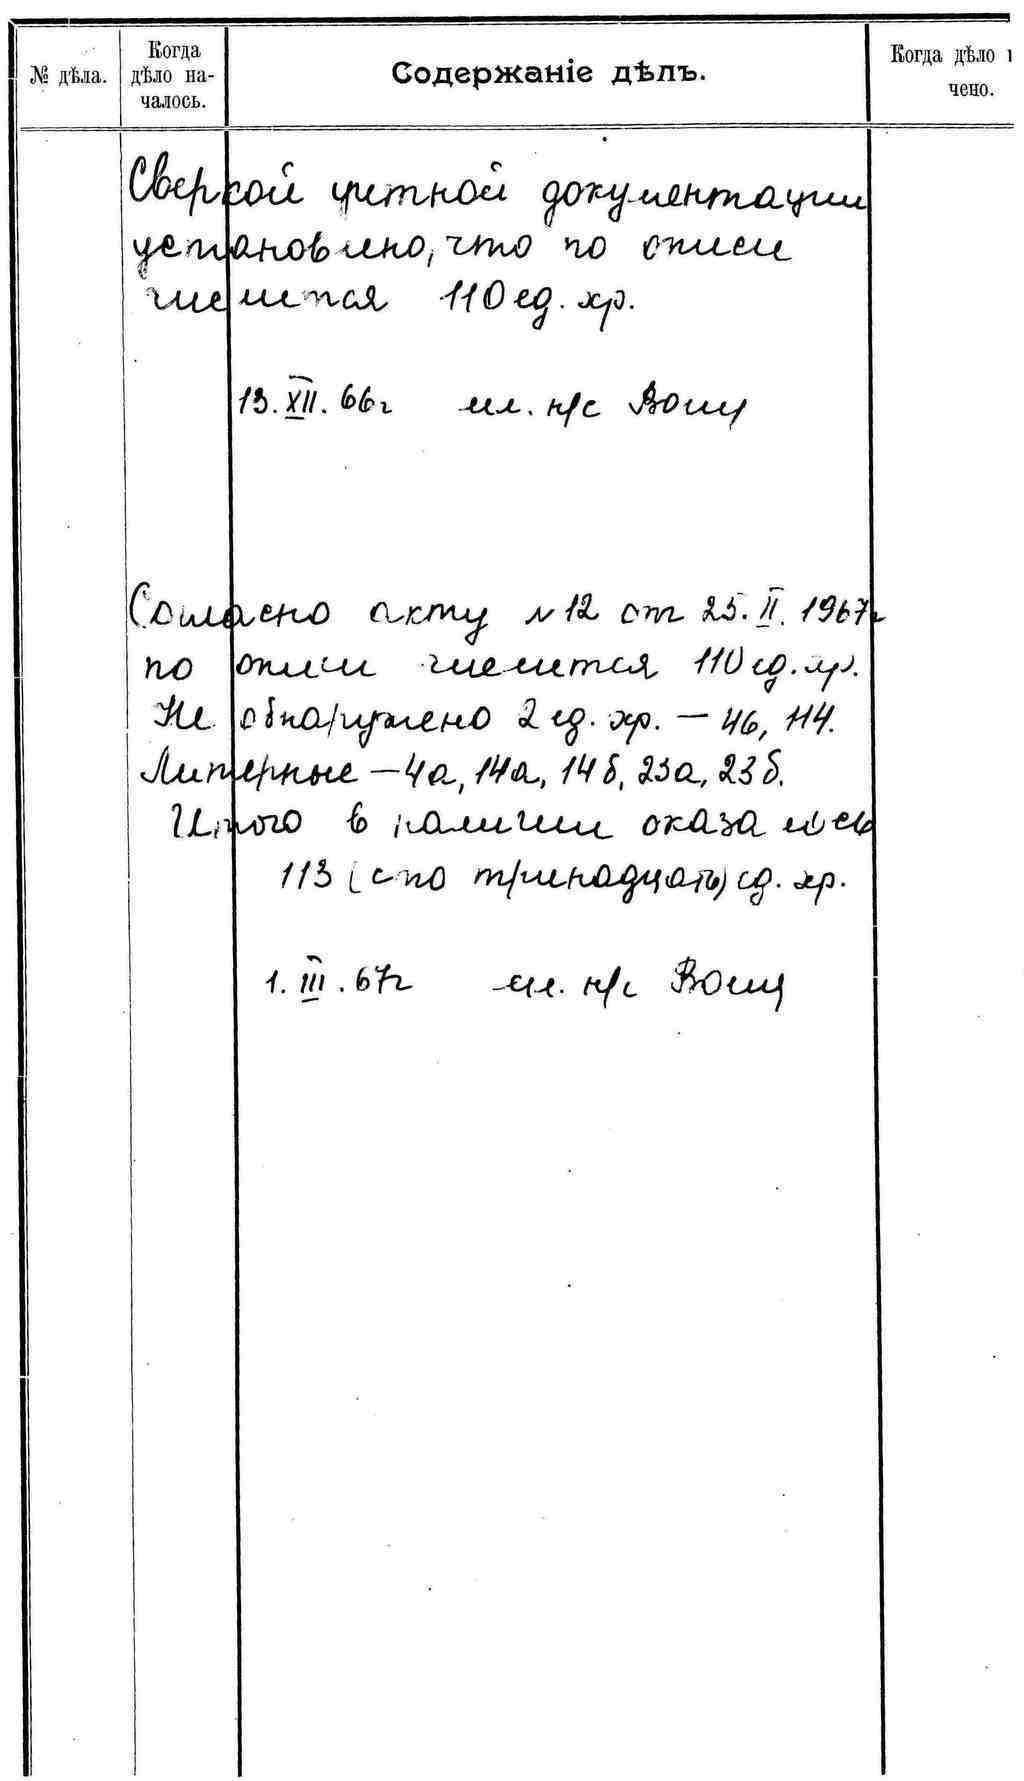 № дѣла.
Когда
дѣло на-
чалось.
Содержаніе дѣлъ.
Когда дѣло
чено.
Сверкой учетной документации
установлено, что по описи
числится 110 ед. хр.
13. XII. 66 г мл. н/с
Согласно акту № 12 от 25. II. 1967 г
по описи числится 110 ед. хр.
Не обнаружено 2 ед. хр. — 46, 114.
Литерные — 4а, 14а, 14б, 23а, 23б.
Итого в наличии оказалось
113 (сто тринадцать) ед. хр.
1. III. 67 г мл. н/с